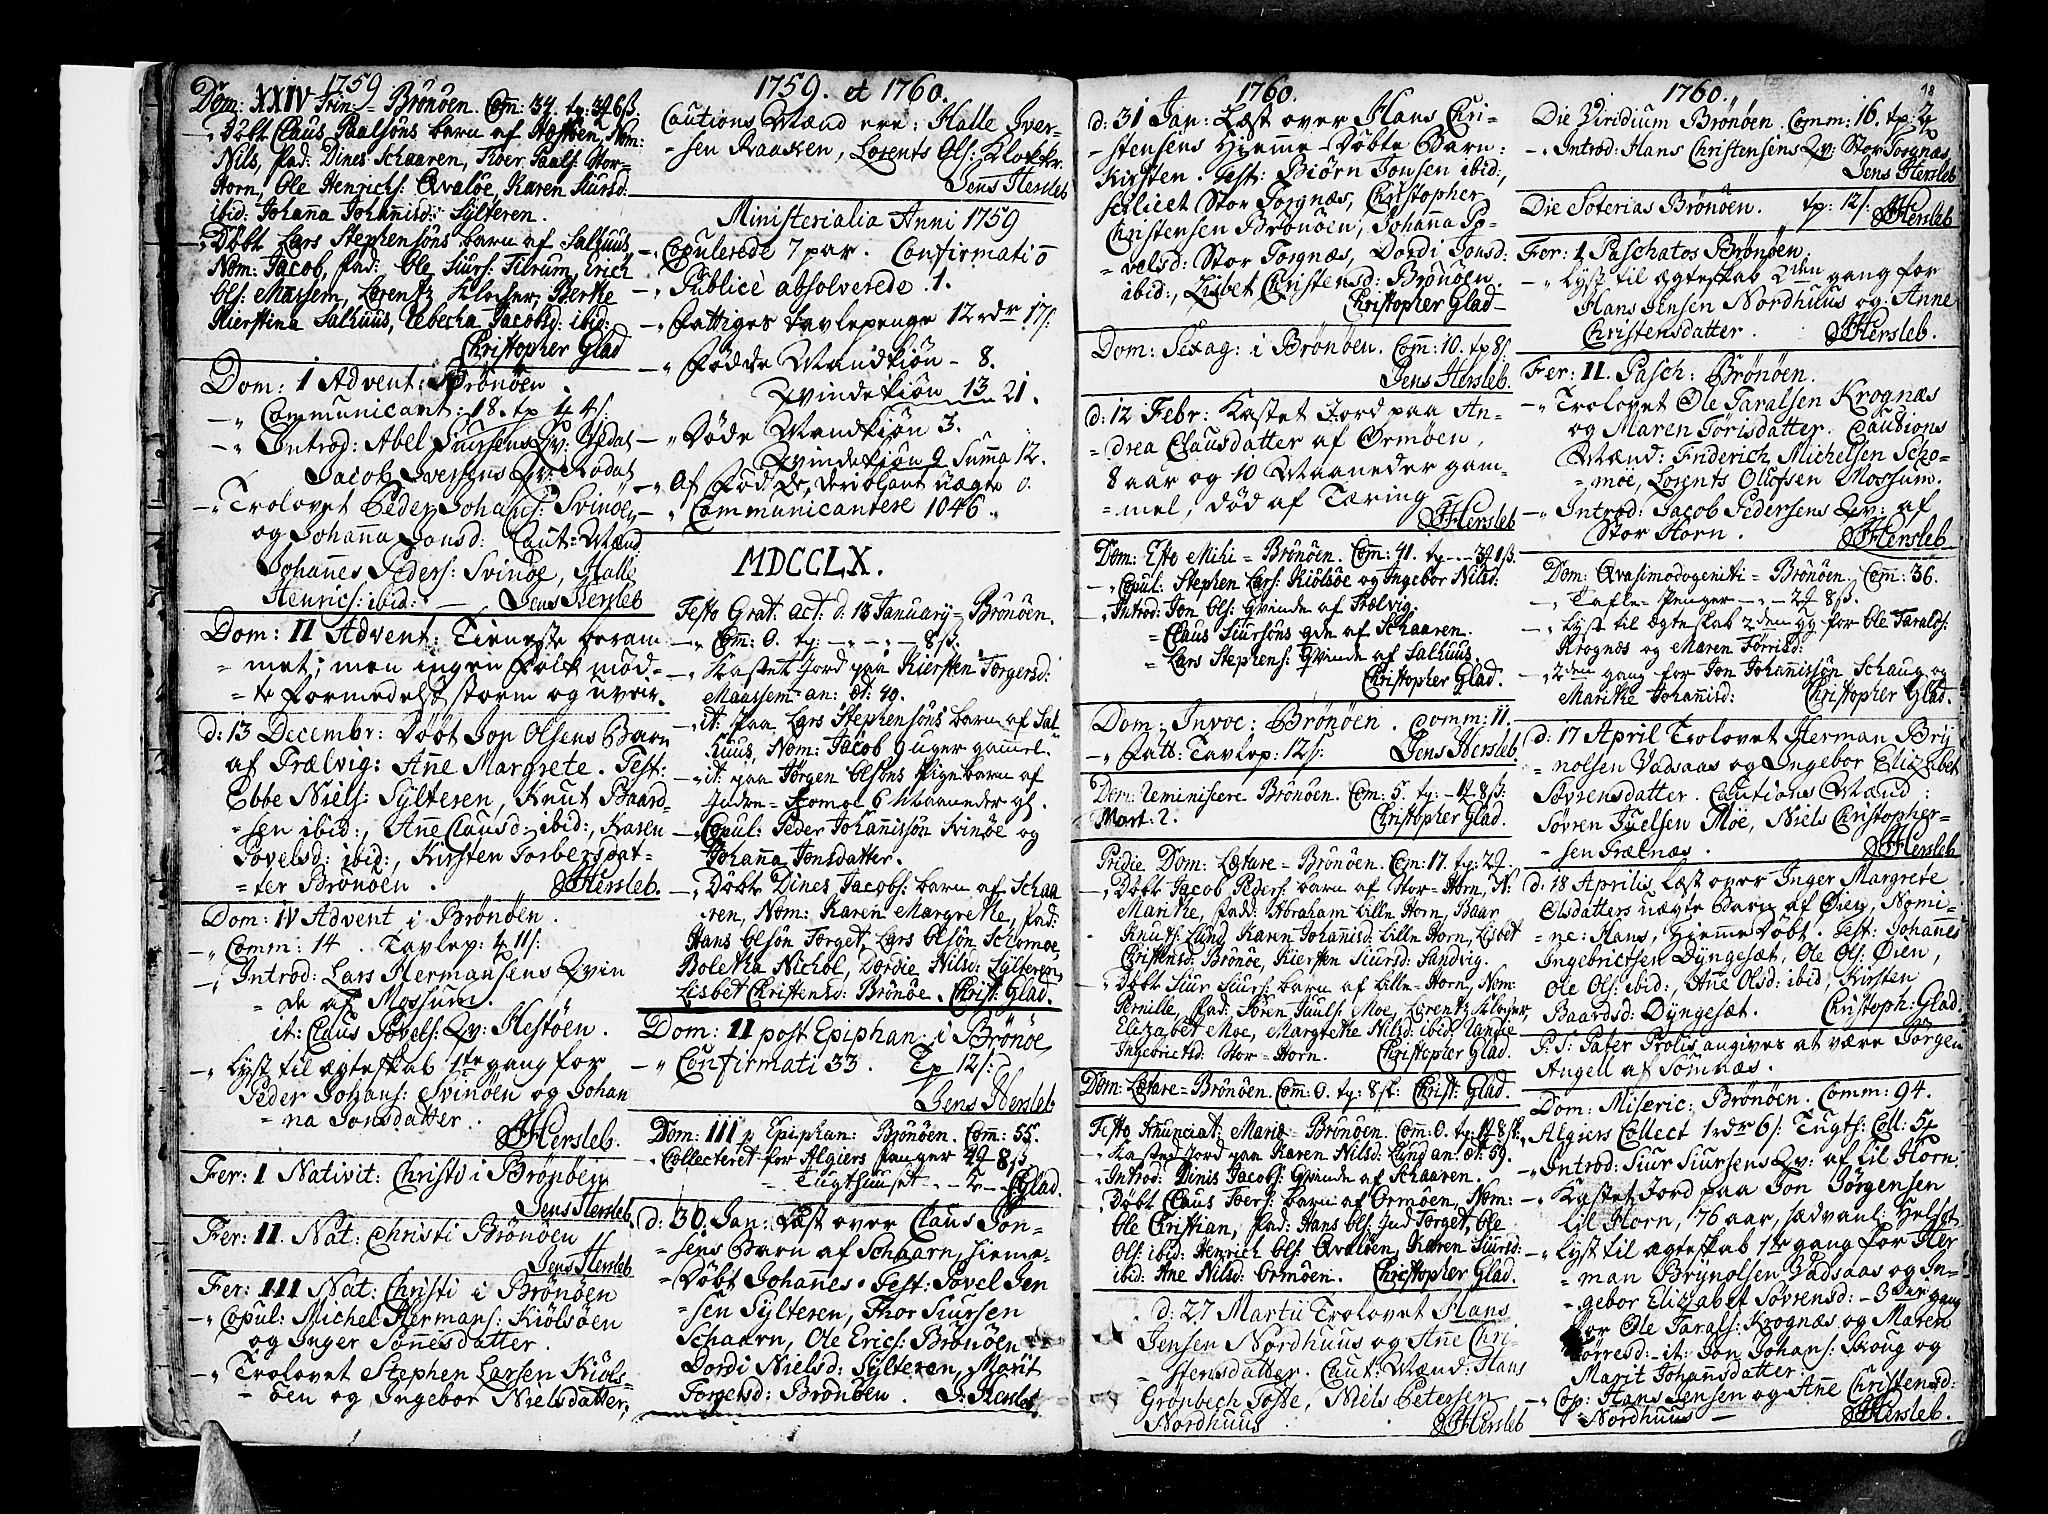 1759
Dom: XXIV Trin: = Brönöen. Com: 34. tp: 3 6 ß
-„ Döbt Claus Paalsöns barn af Hæstöen, Nom:
Nils, fad: Dines Schaaren, Paals: Stor-
Horn, Ole Henrichs: Qvalöe, Karen Siursd:
ibid: Johanna Johannisd: Sylteren.
-„ Döbt Lars Stephensöns barn af Salhuus,
Nom: Jacob, fad: Ole Siurs: Tilrum, Erich
Ols: Massem, Lorentz Klocher, Berthe
Kierstina Salhuus, Rebecha Jacobsd: ibid:
Christopher Glad
Dom: 1 Advent: Brönöen.
-„ Communicant: 18. tp 4 ß:
-„ Introd: Abel Siursens Qv:
Jacob Iversens Qv:
-„ Trolovet Peder Johans: Svinöen
og Johanna Jonsd: Caut: Mænd
Johannes Peders: Svinöe, Halle
Henrics: ibid: — Jens Hersleb
Dom: II Advent: Tieneste beram
= met; men ingen Folk möd-
= te formedelst storm og uveir.
d: 13 Decembr: Döbt Jon Olsens Barn
af Trælvig: Ane Margrete. Test:
Ebbe Niels: Sylteren, Knut Baard-
= sen ibid:, Ane Clausd: ibid:, Karen
Povelsd: ibid:, Kirsten Torbersdat-
= ter Brönöen. JHersleb.
Dom: IV Advent i Brönöen.
-„ Comm: 14. Tavlep: 11 ß:
-„ Introd: Lars Hermansens Qvin
= de af Mossum.
it: Claus Povels: Qv: Hestöen.
-„ Lyst til ægteskab 1ste gang for
Peder Johans: Svinöen og Johan
= na Jonsdatter.
JHersleb.
Fer: 1 Nativit: Christi i Brönöen
Jens Hersleb.
Fer: II Nat: Christi Brönöen
Jens Hersleb
Fer: III Nat: Christi i Brönöen
-„ Copul: Michel Hermans: Kiölsöen
og Inger Sönnesdatter.
-„ Trolovet Stephen Larsen Kiöls-
= öen og Ingebor Nielsdatter,
1759. et 1760.
Cautions Mænd ere: Halle Iver-
= sen Raasken, Lorents Ols: Klokker.
Jens Hersleb
Ministerialia Anni 1759
-„ Copulerede 7 par. Confirmati 0
-„ Publicè absolverede .1.
-„ Fattiges tavlepenge 12 rdr 17 ß:
-„ Födde Mandkiön - 8.
Qvindekiön 13. 21.
-„ Döde Mandkiön 3.
Qvindekiön 9 Summa 12.
-„ Af Födde, deriblant uægte 0.
-„ Communicantere 1046.
MDCCLX.
Festo Grat: act: d: 18 January = Brönöen.
-„ Com: 0. tp: - „ - „ - 8 ß.
-„ Kastet Jord paa Kiersten Torgersd:
Maassem an: æt: 49.
-„ it: paa Lars Stephensöns barn af Sal-
huus, Nom: Jacob 9 uger gamel.
-„ it: paa Jörgen Olsöns Pigebarn af
Indre = Tomoe 6 Maaneder gl.
-„ Copul: Peder Johannissön Svinöe og
Johanna Jonsdatter.
-„ Döbt Dines Jacobs: barn af Schaa
ren, Nom: Karen Margrethe, fad:
Hans Olsön Torget, Lars Olsön Schomoe,
Boletha Nichol, Dordie Nilsd: Sylteren,
Lisbet Christensd: Brönöe. Christ: Glad.
Dom: II post Epiphan: i Brönöe
-„ Confirmati 33. Tp 12 ß:
Jens Hersleb
Dom: III p Epiphan: Brönöen. Com: 55.
-„ Collecteret for Algiers fanger 4 8 ß
= Tugthuuset - „ 5 - Glad.
d: 30. Jan: Læst over Claus Jon-
= sens Barn af Schaarn, hieme-
= Döbt Johannes. Test: Povel Jen
= sen Sylteren, Thor Siursen
Schaarn, Ole Erics: Brönöen
Dordi Nielsd: Sylteren, Marit
Torgersd: Brönöen. J: Hersleb
1760.
d: 31 Jan: Læst over Hans Chri-
= stensens Hjemme-Döbte Barn:
Kirsten. Test: Biörn Jonsen ibid:,
scilicet Stor Torgnæs, Christopher
Christensen Brönöen, Johanna Po-
= velsd: Stor Torgnæs, Dordi Jonsd:
ibid:, Lisbet Christensd: Brönöen.
Christopher Glad
Dom: Sexag: i Brönöen. Com: 10. tp 8 ß.
Jens Hersleb.
d: 12 Febr: Kastet Jord paa An-
= drea Clausdatter af Ormöen,
8 aar og 10 Maaneder gam-
= mel, död af Tæring.
JHersleb
Dom: Esto Mihi = Brönöen. Com: 41. tp - - 3 1 ß.
-„ Copul: Stephen Lars: Kiölsöe og Ingebor Nilsd:
-„ Introd: Jon Ols: Qvinde af Trælvig.
= Claus Siursöns qde af Schaaren.
= Lars Stephens: Qvinde af Salhuus
Christopher Glad.
Dom: Invoc: Brönöen. Comm: 11.
-„ Fatt: Tavlep: 12 ß: Jens Hersleb.
Dom: Reminiscere Brönöen. Com: 5. tp: - 8 ß:
Mart: 2. Christopher Glad.
Predie Dom: Lætare = Brönöen. Com: 17. tp: 2
-„ Döbt Jacob Peders: barn af Stor-Horn, N:
Marithe, fadd: Abraham Lille Horn, Baar
Knuts: Lund, Karen Johanisd: Lille Horn, Lisbet
Christensd: Brönöe, Kiersten Siursd: Sandvig.
-„ Döbt Siur Siurs: barn af Lille-Horn, Nom:
Pernille, fad: Sören Juuls: Moe, Lorentz Klocher,
Elizabet Moe, Margrethe Nilsd: ibid:
Ingebricsd: Stor-Horn. Christopher Glad.
Dom: Lætare = Brönöen. Com: 0. tp: 8 ß: Christ: Glad.
Festo Anunciat: Mariæ = Brönöen. Com: 0. tp: 8 ß:
-„ Kastet Jord paa Karen Nilsd: Lund an: æt: 69.
-„ Introd: Dinis Jacobs: Qvinde af Schaaren.
-„ Döbt Claus Toers: barn af Ormöen, Nom:
Ole Christian, fad: Hans Ols: Ind Torget, Ole
Ols: ibid: Henrich Ols: Qvalöen, Karen Siursd:
ibid: Ane Nilsd: Ormöen. Christopher Glad.
d: 27 Martii Trolovet Hans
Jensen Nordhuus og Ane Chri-
= stensdatter. Caut: Mænd: Hans
Grönbech Tofte, Niels Petersen
Nordhuus. JHersleb
1760. 18
Die Viridium Brönöen. Comm: 16. tp: 2
-„ Introd: Hans Christensens Qv: Stor Torgnæs
Jens Hersleb
Die Soterias Brönöen. tp: 12 ß: JHersleb
Fer: 1 Paschatos Brönöen.
-„ Lyst til ægteskab 2den gang for
Hans Jensen Nordhuus og Anne
Christensdatter. JHersleb.
Fer: II. Pasch: Brönöen.
-„ Trolovet Ole Taralsen Krognæs
og Maren Törisdatter. Cautions
Mænd: Friderich Michelsen Scho-
= möe, Lorents Olofsen Mossum.
-„ Introd: Jacob Pedersens Qv: af
Stor Horn. JHersleb
Dom: Qvasimodogeniti = Brönöen. Com: 36.
-„ Tafle-Penger - „ - 2 8 ß.
-„ Lyst til ægteskab 2den g for Ole Taralds:
Krognæs og Maren Törrisd:
- 2den gang for Jon Johannissön Schaug og
Marithe Johanisd: Christopher Glad.
d: 17 April Trolovet Herman Bry
= nolsen Vadsaas og Ingebor Elizabet
Sövrensdatter. Cautions Mænd:
Sövren Juelsen Moe, Niels Christopher-
= sen Trælnæs. JHersleb
d: 18 Aprilis Læst over Inger Margrete
Olsdatters uægte Barn af Öien, Nomi-
= ne: Hans, Hjemmedöbt. Test: Johannes
Ingebrictsen Dyngesæt, Ole Ols: Öien,
Ole Ols: ibid:, Ane Olsd: ibid, Kirsten
Baardsd: Dyngesæt. Christoph: Glad.
P: S: Pater Prolis angives at være Jörgen
Angell af Sömnæs.
Dom: Miseric: Brönöen. Comm: 94.
Algiers Collect 1 rdr 6 ß: Tugts: Coll: 5
-„ Introd: Siur Siursens Qv: af Lil Horn:
-„ Kastet Jord paa Jon Jörgensen
Lil Horn, 76 aar, sædvanl: Helsot
-„ Lyst til ægteskab 1ste gang for Her
= man Brynolsen Vadsaas og In=
= gebor Elizabet Sövrensd: - 3die gang
for Ole Tarals: Krognæs og Maren
Törresd: it: Jon Johans: Skoug og
Marit Johansdatter.
-„ Cop: Hans Jensen og Ane Christensd:
Nordhuus — JHersleb.